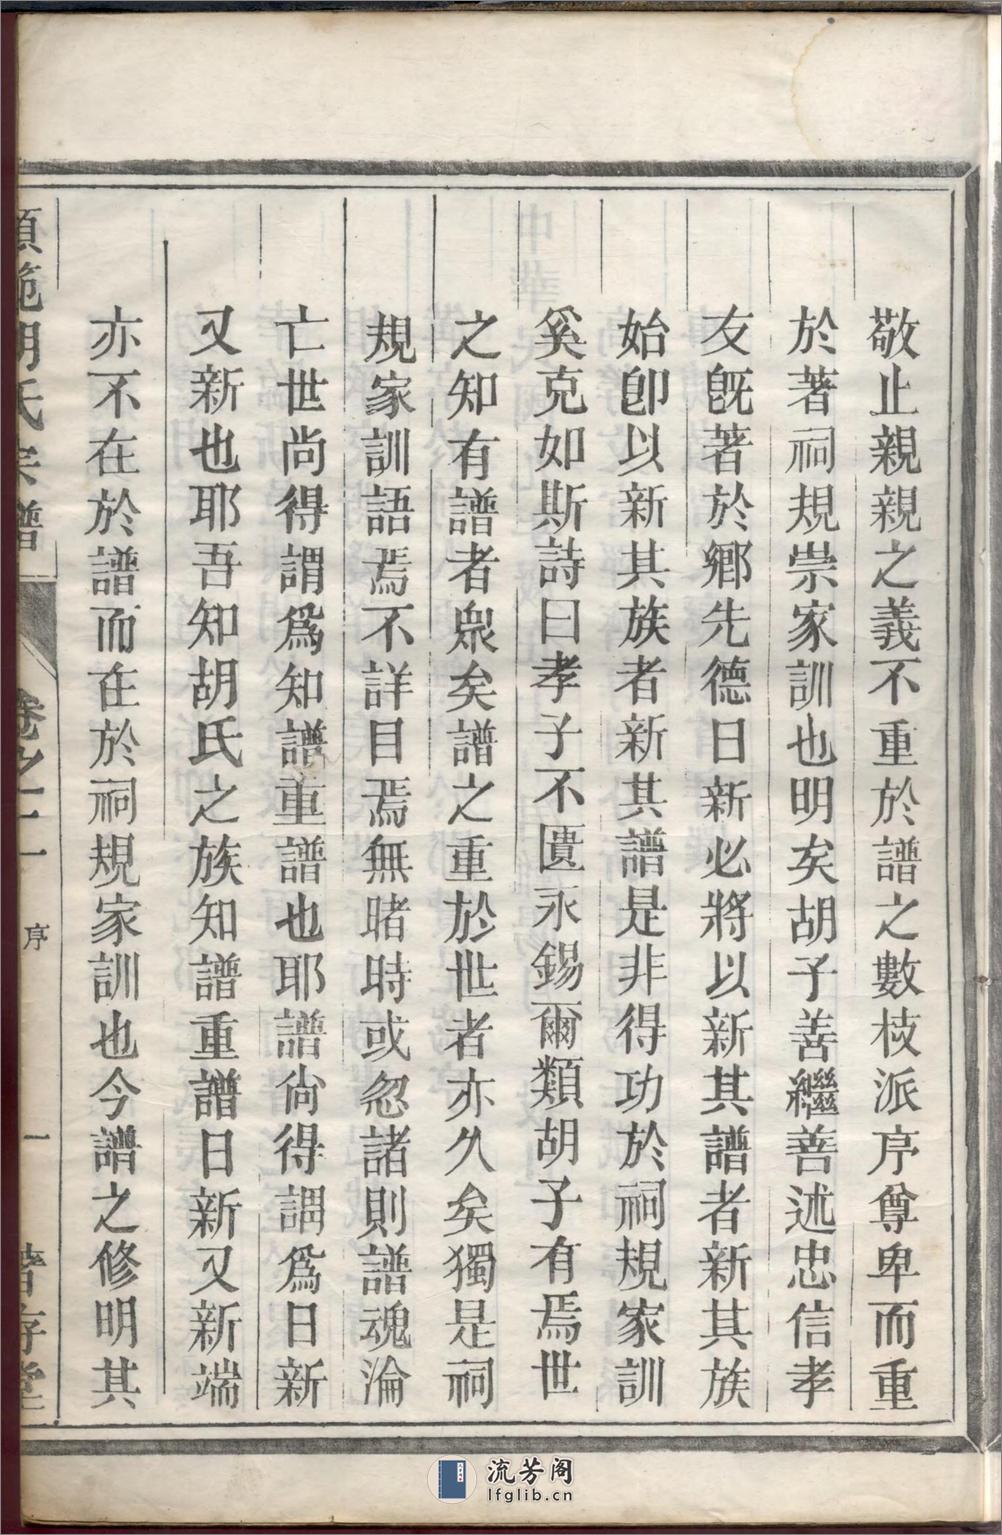 敬止親親之義不重於譜之數枝派序尊卑而重
於著祠規崇家訓也明矣胡子善繼善述忠信孝
友旣著於鄉先德日新必將以新其譜者新其族
始卽以新其族者新其譜是非得功於祠規家訓
奚克如斯詩曰孝子不匱永錫爾類胡子有焉世
之知有譜者衆矣譜之重於世者亦久矣獨是祠
規家訓語焉不詳目焉無睹時或忽諸則譜魂淪
亡世尚得謂爲知譜重譜也耶譜尙得謂爲日新
又新也耶吾知胡氏之族知譜重譜日新又新端
亦不在於譜而在於祠規家訓也今譜之修明其
胡氏宗譜
卷之二
序
一
存堂
流芳阁
lfglib.cn